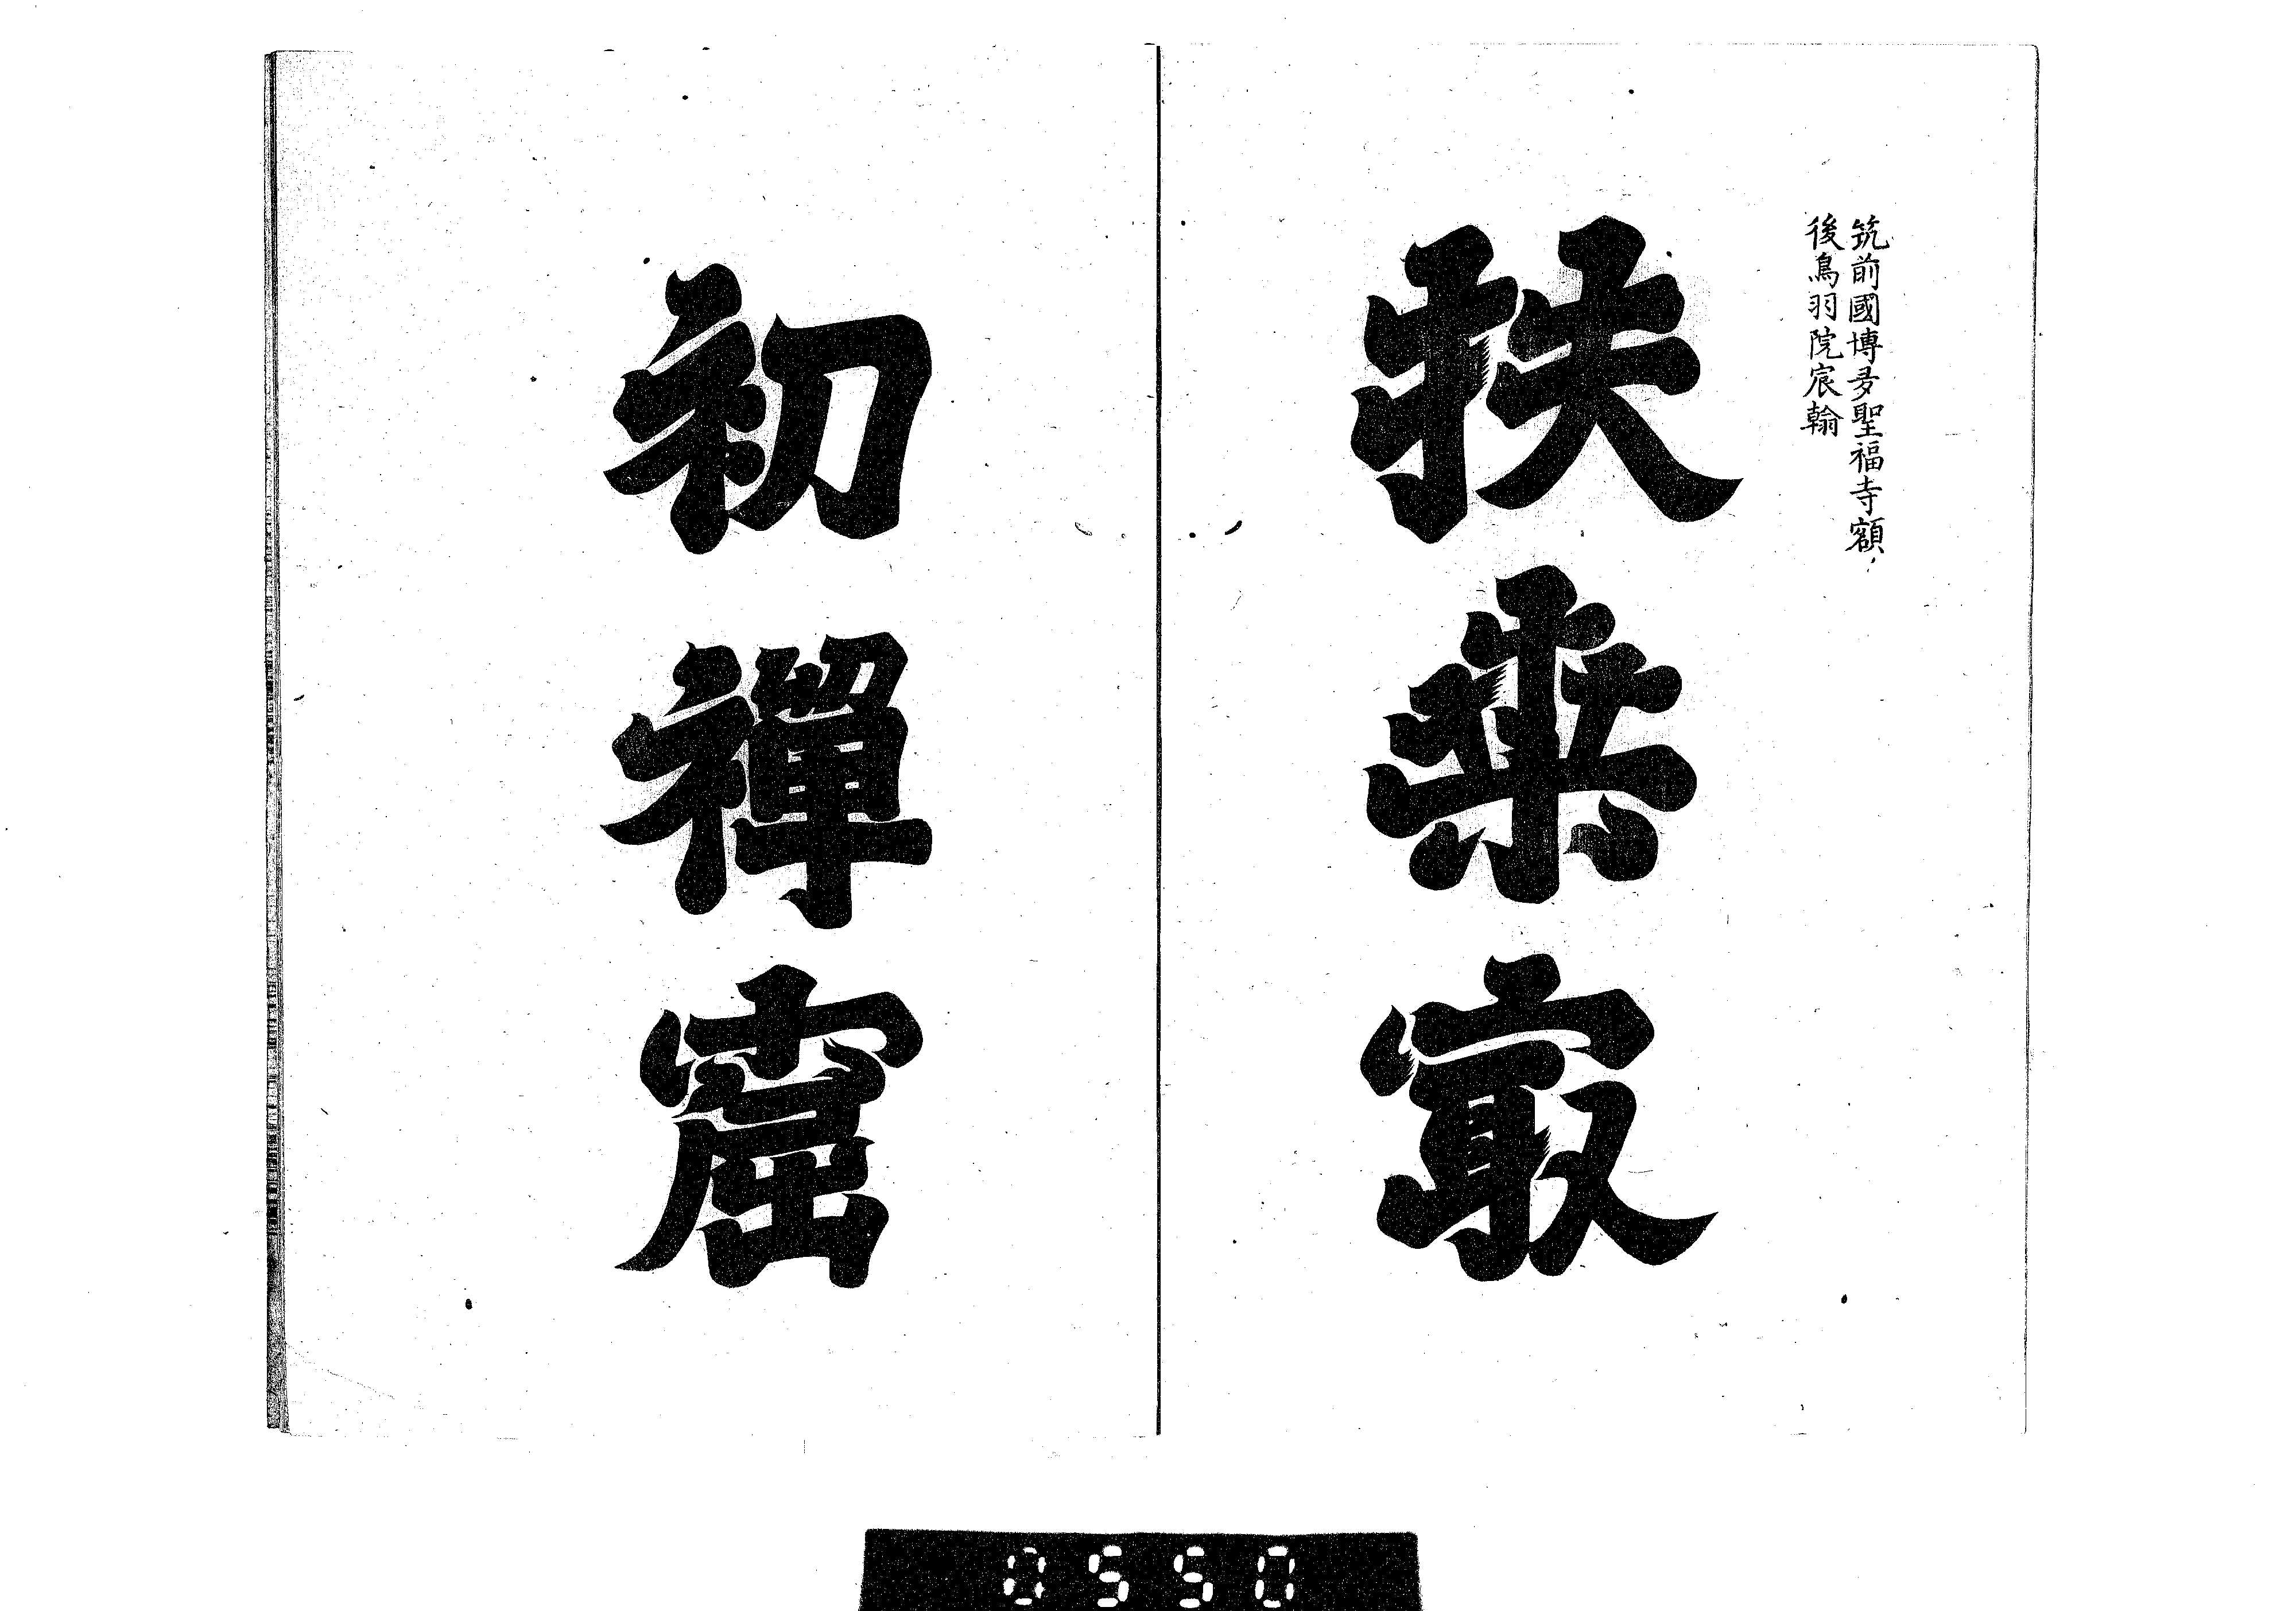 筑前國博多聖福寺額
後鳥羽院宸翰
扶桒㝡
初禪窟
0550